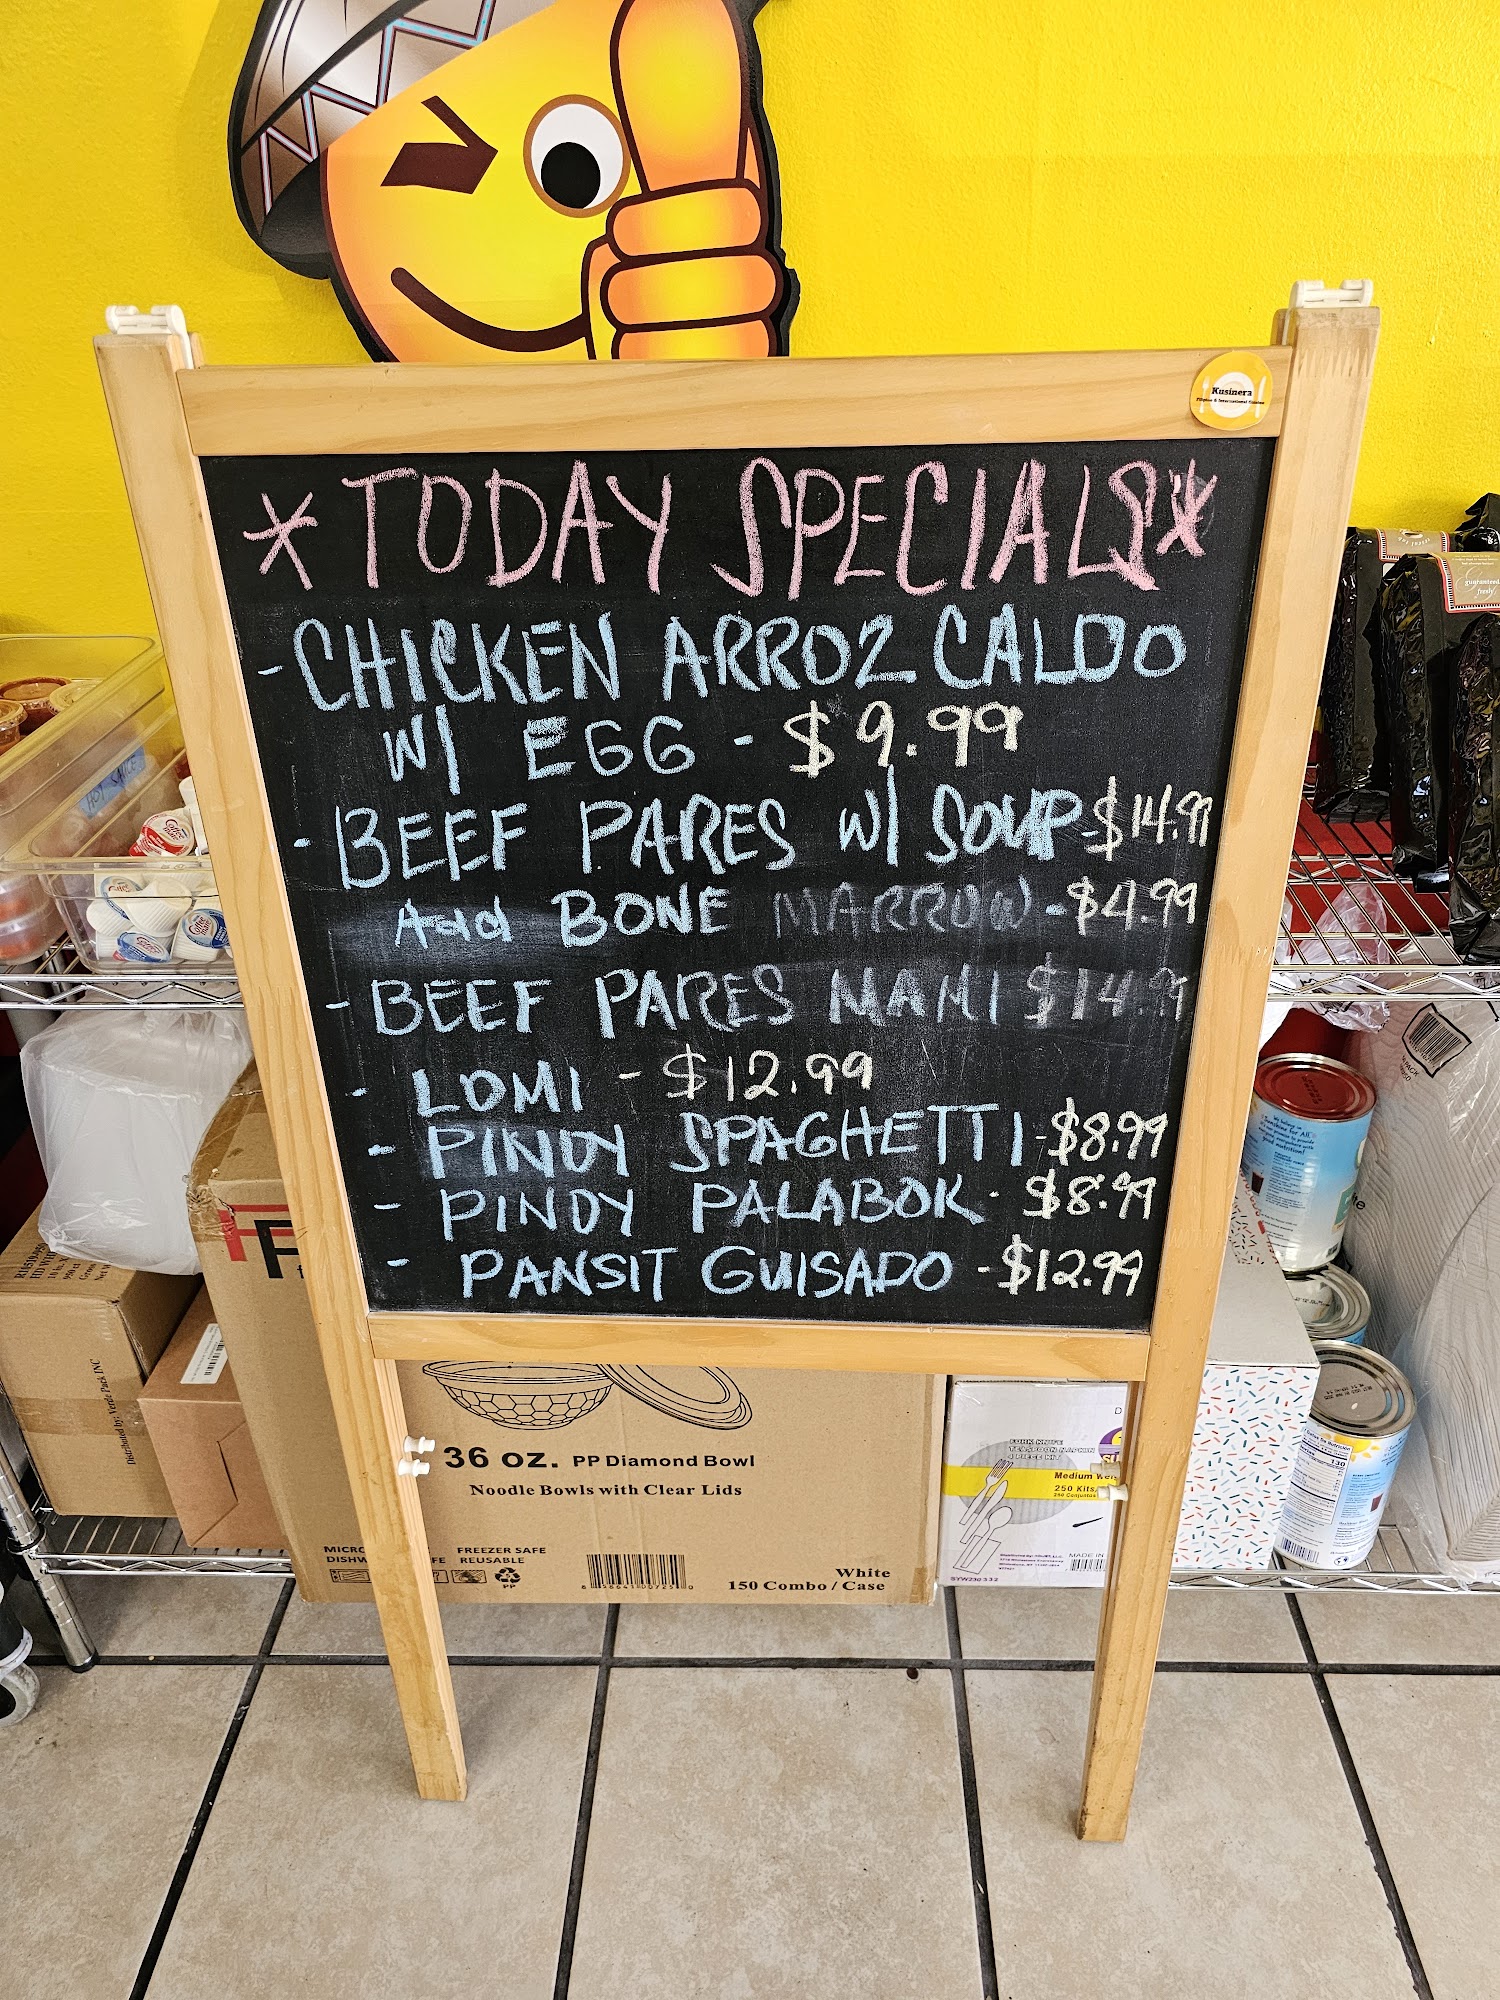 Kusinera
Filipino & International Cuisine
* TODAY SPECIALS *
- CHICKEN ARROZ CALDO
W/ EGG - $9.99
- BEEF PARES W/ SOUP - $14.99
Add BONE MARROW - $4.99
- BEEF PARES MAMI $14.99
- LOMI - $12.99
- PINOY SPAGHETTI - $8.99
- PINOY PALABOK - $8.99
- PANSIT GUISADO - $12.99
HOT SAUCE
guaranteed
fresh
Distributed by: Verde Pack INC
36 oz. PP Diamond Bowl
Noodle Bowls with Clear Lids
FREEZER SAFE
REUSABLE
PP
White
150 Combo / Case
FORK KNIFE
TEASPOON NAPKIN
4 PIECE KIT
Medium
250 Kits/
MADE IN
130